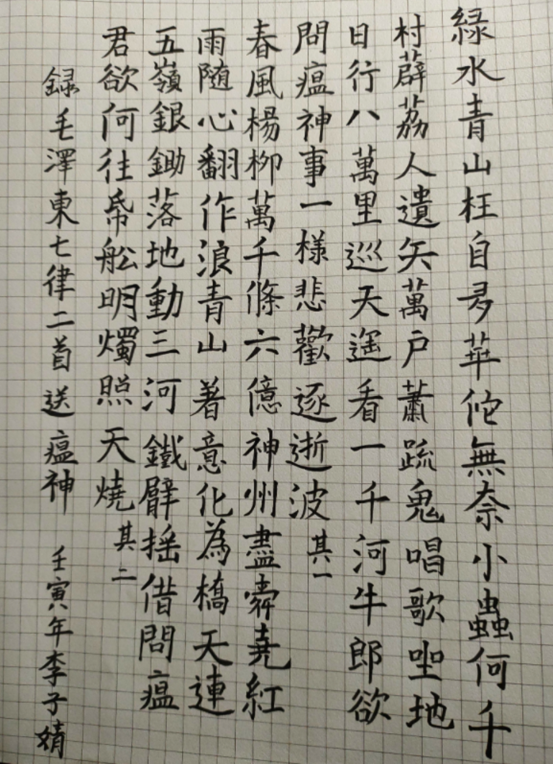 緑水青山枉自多華佗無奈小蟲何千
村薜荔人遺矢萬户蕭疏鬼唱歌坐地
日行八萬里巡天遥看一千河牛郎欲
問瘟神事一樣悲歡逐逝波 其一
春風楊柳萬千條六億神州盡舜堯紅
雨隨心翻作浪青山著意化為橋天連
五嶺銀鋤落地動三河鐵臂摇借問瘟
君欲何往帋船明燭照天燒 其二
録毛澤東七律二首送瘟神 壬寅年李子婧